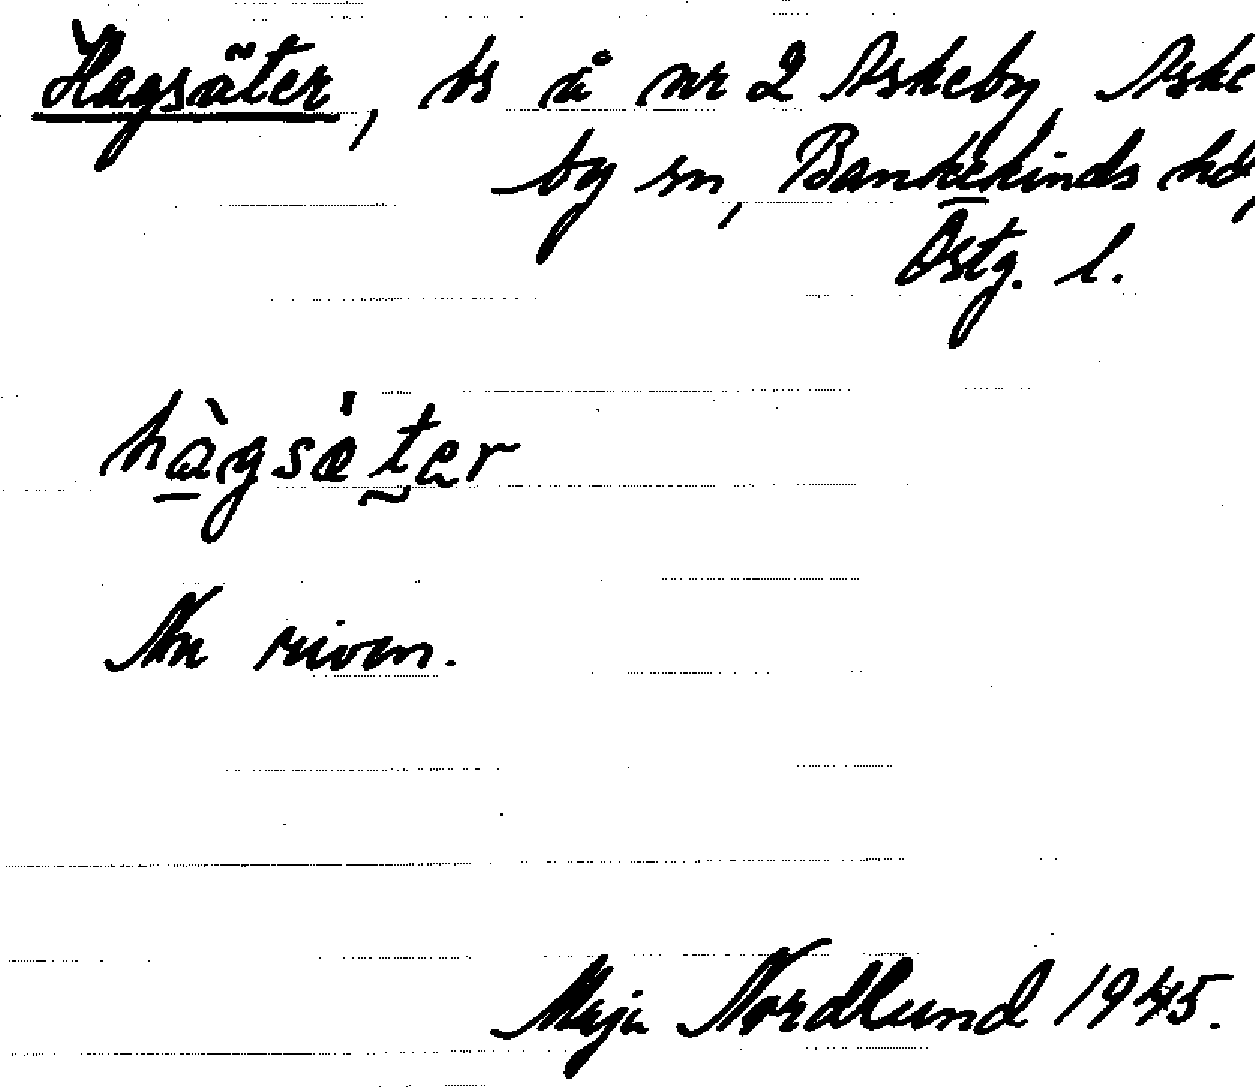 Hagsäter, bs å nr 2 Askeby, Aske
by sn, Bankekinds hd,
Östg. l.
hàgsä́ter
Nu riven.
Maja Nordlund 1945.